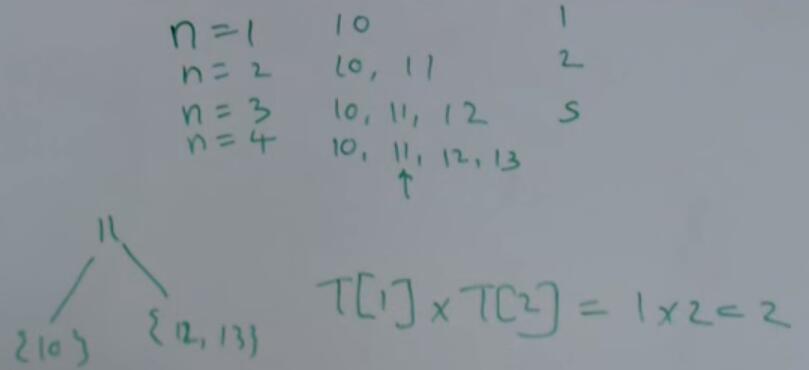 n = 1 10 1
n = 2 10, 11 2
n = 3 10, 11, 12 5
n = 4 10, 11, 12, 13
11
{10} {12, 13}
T[1] x T[2] = 1 x 2 = 2